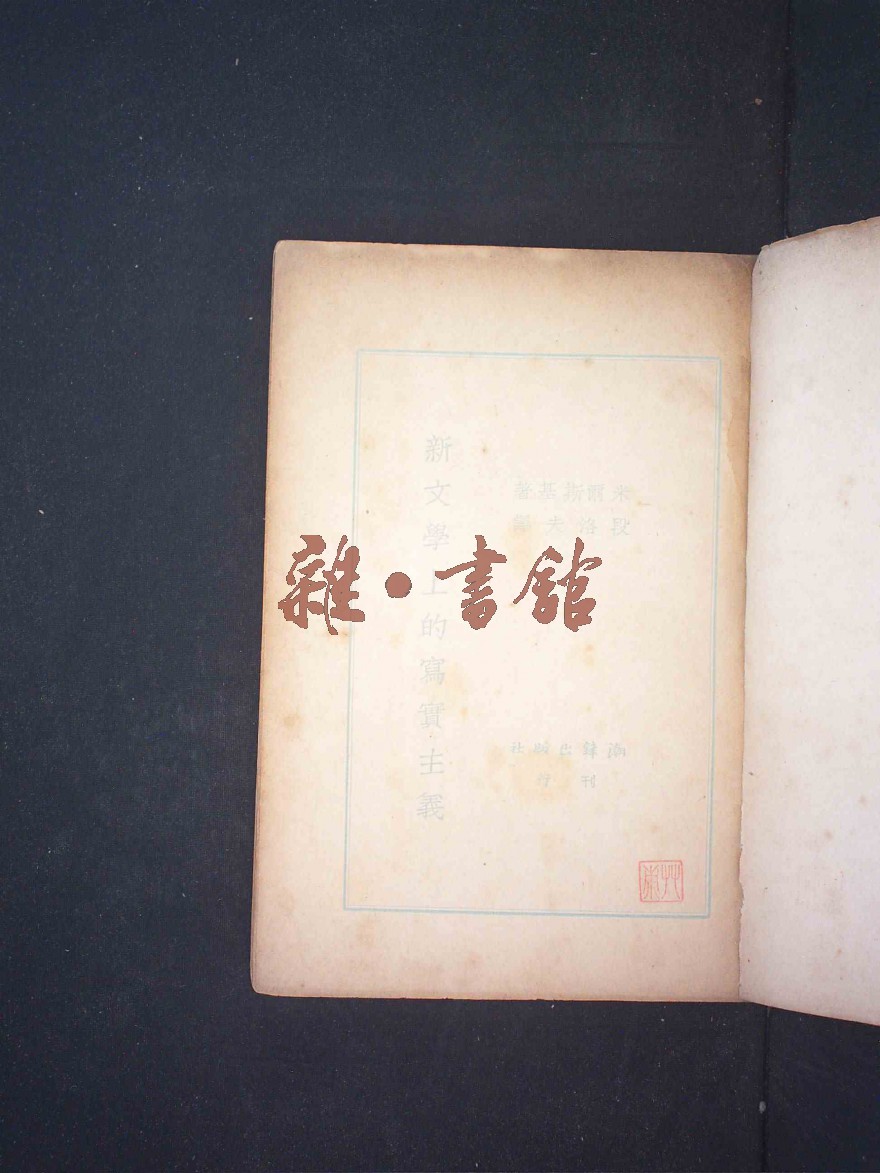 新文學上的寫實主義
米爾斯基著
段洛夫譯
潮鋒出版社
刊行
雜·書館